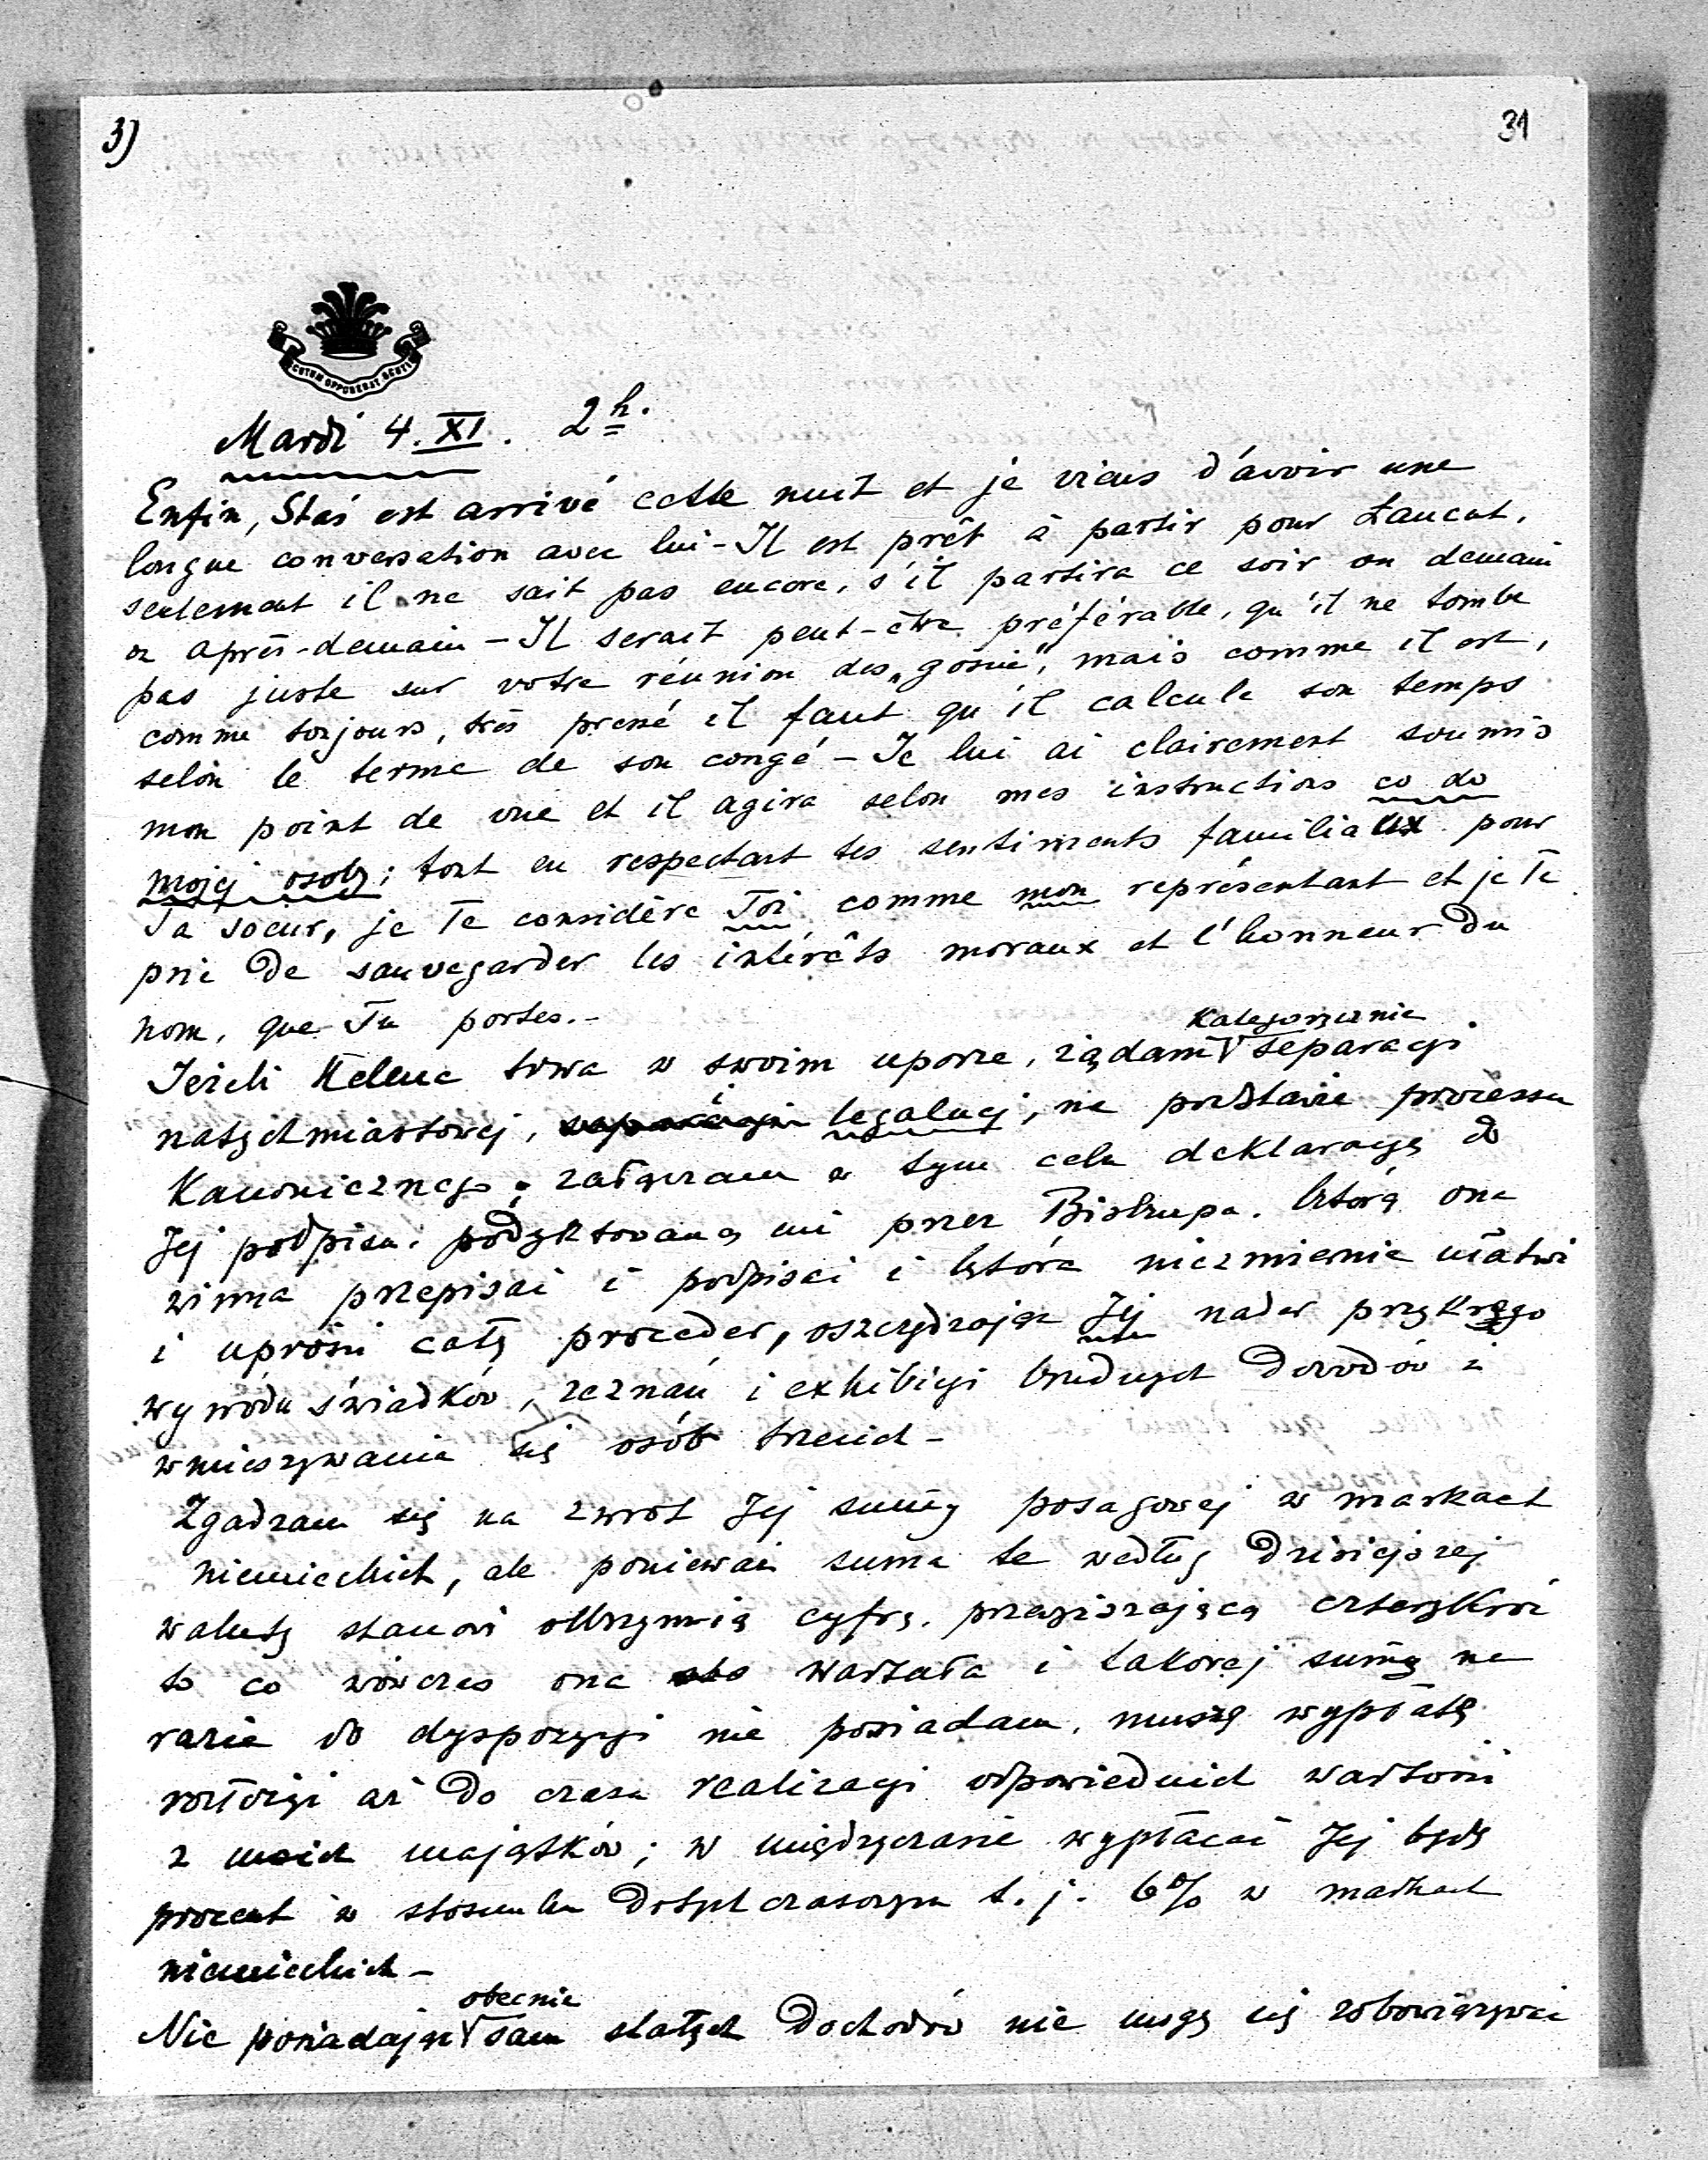 3)
31
SCUTUM OPPONEBAT SCUTI
Mardi 4. XI. 2h.
Enfin, Staś est arrivé cette nuit et je viens d'avoir une
longue conversation avec lui - Il est prêt à partir pour Łańcut,
seulement il ne sait pas encore, s'il partira ce soir ou demain
ou après-demain - Il serait peut-être préférable, qu'il ne tombe
pas juste sur votre réunion des „gości", mais comme il est,
comme toujours, très pressé il faut qu'il calcule son temps
selon le terme de son congé - Je lui ai clairement soumis
mon point de vue et il agira selon mes instructions co do
mojej osoby; tout en respectant tes sentiments familiaux pour
Ta soeur, je Te considère Toi comme mon représentant et je Te
prie de sauvegarder les intérêts moraux et l'honneur du
nom, que Tu portes. -
Kategorycznie
Jeżeli Helena trwa w swoim uporze, żądam separacji
natychmiastowej, legalnej, na podstawie processu
Kanonicznego; załączam w tym celu deklaracyę do
Jej podpisu, podyktowaną mi przez Biskupa, którą ona
winna przepisać i podpisać i która niezmiernie ułatwi
i uprości całą proceder, oszczędzając Jej nader przykrego
wywodu świadków, zeznań i exhibicyi brudnych dowodów i
wmieszywania się osób trzecich -
Zgadzam się na zwrot Jej sumy posagowej w markach
niemieckich, ale ponieważ suma ta według dzisiejszej
waluty stanowi olbrzymią cyfrę, przewyższającą czterykroć
to co wówczas ona warzała i takowej sumy na
razie do dyspozycyi nie posiadam, muszę wypłatę
rozłożyć aż do czasu realizacyi odpowiednich wartości
z moich majątków; w międzyczasie wypłacać Jej będę
procent w stosunku dotychczasowym t. j. 6% w markach
niemieckich -
obecnie
Nie posiadając sam stałych dochodów nie mogę się zobowiązywać